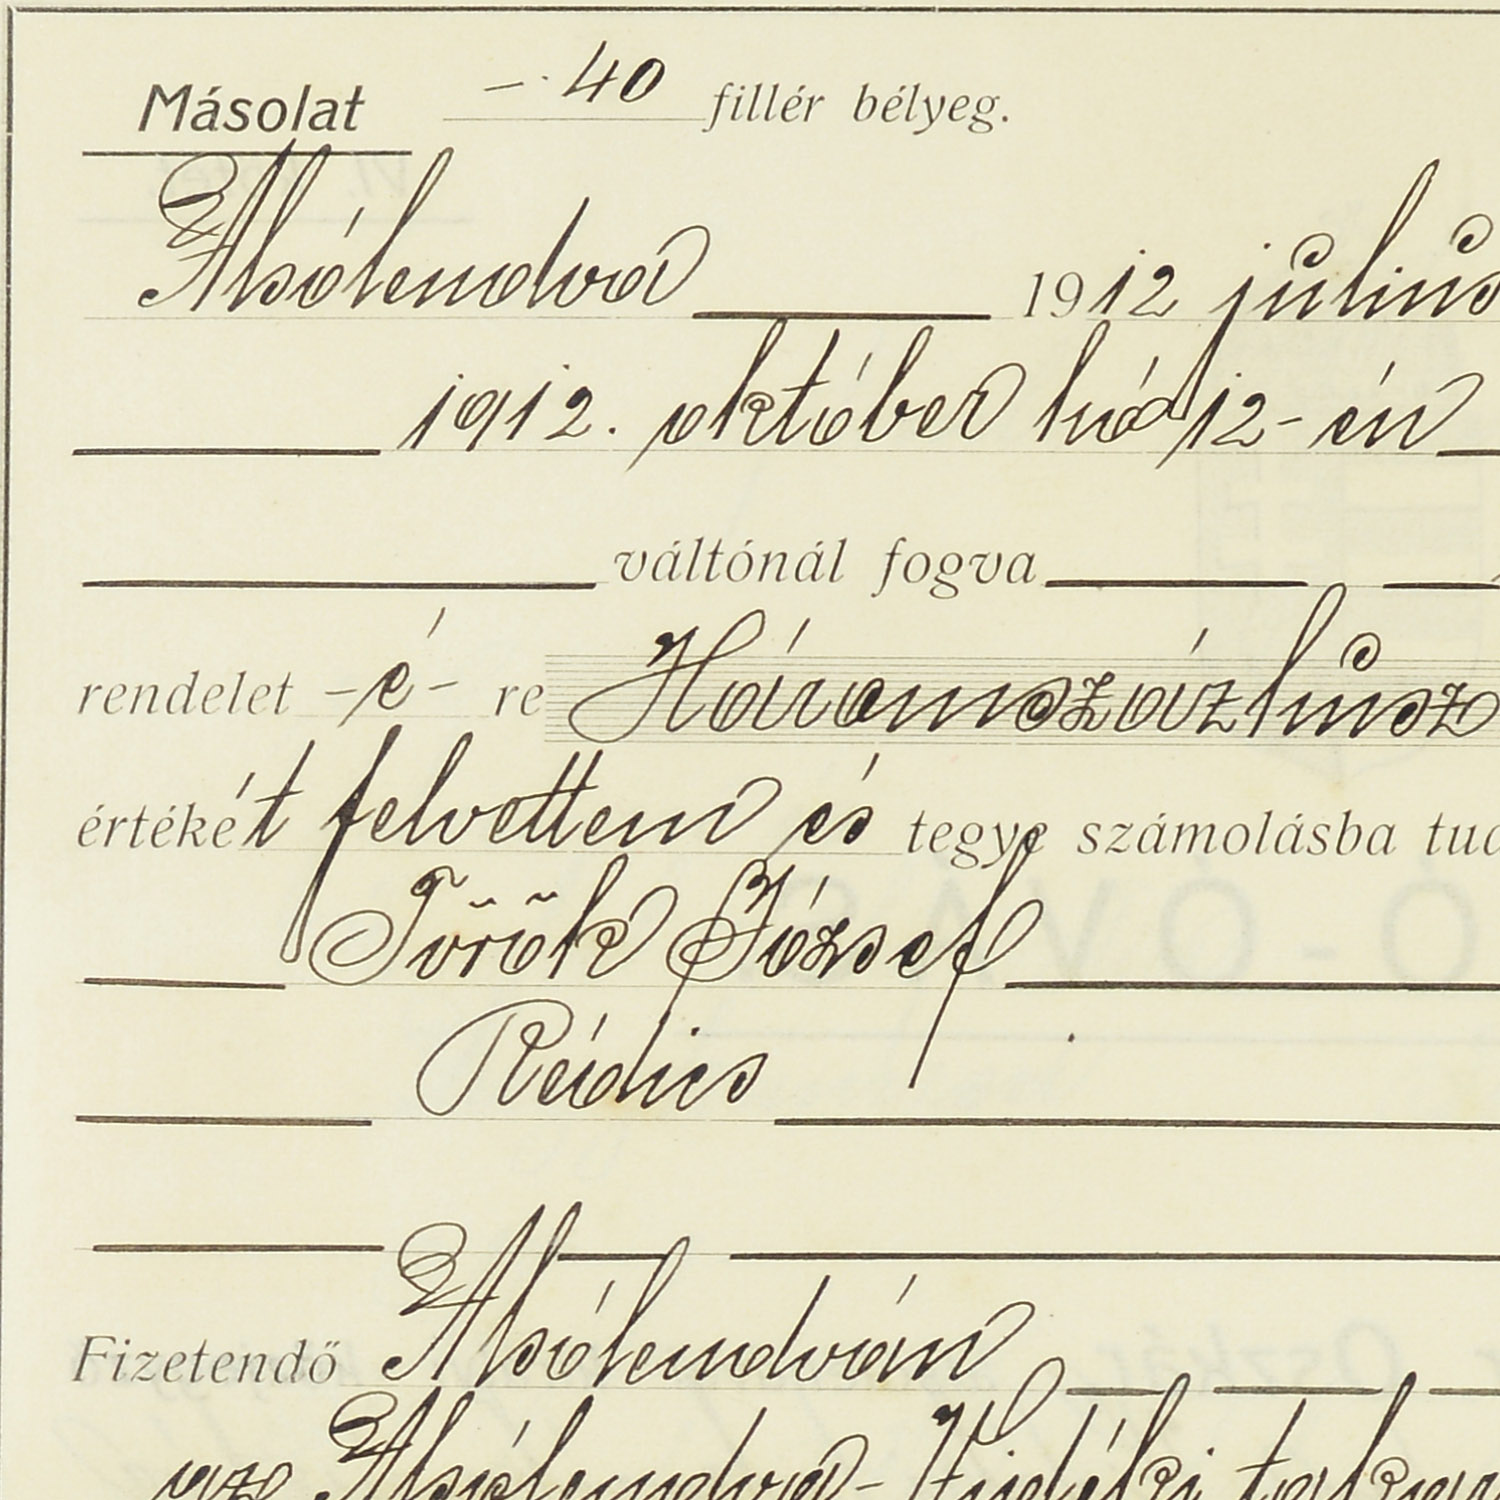 Másolat –. 40 fillér bélyeg.
Alsólendva 1912 július
1912. október hó 12-én
váltónál fogva
rendelet –é– re Háromszázhúsz
értékét felvettem és tegye számolásba
Török József
Rédics
Fizetendő Alsólendván
az Alsólendva-Vidéki